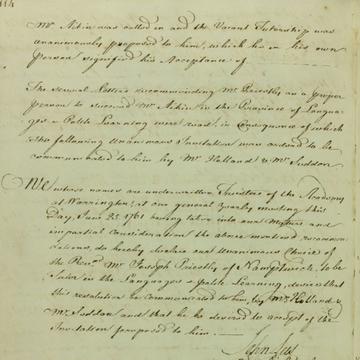 114
Mr Aikin was called in and the Vacant Tutorship was
unanimously proposed to him, which he in his own
Person signified his Acceptance of
The several Letters recommending Mr Priestly as a proper
person to succeed Mr Aikin in the Province of Langua-
ges & Polite Learning were read, in Consequence of which
the following unanimous Invitation was ordered to be
communicated to him by Mr Holland & Mr Seddon
We whose names are underwritten Trustees of the Academy
at Warrington, at our general Yearly meeting this
Day, June 25. 1761 having taken into our mature and
impartial consideration the above mentioned recommen-
dations, do hereby declare our unanimous Choice of
the Revd. Mr Joseph Priestly of Namptwich to be
Tutor in the Languages & polite Learning, desire that
this resolution be communicated to him, by Mr Holland &
Mr Seddon and that he be desired to accept of the
Invitation proposed to him.
John Lees